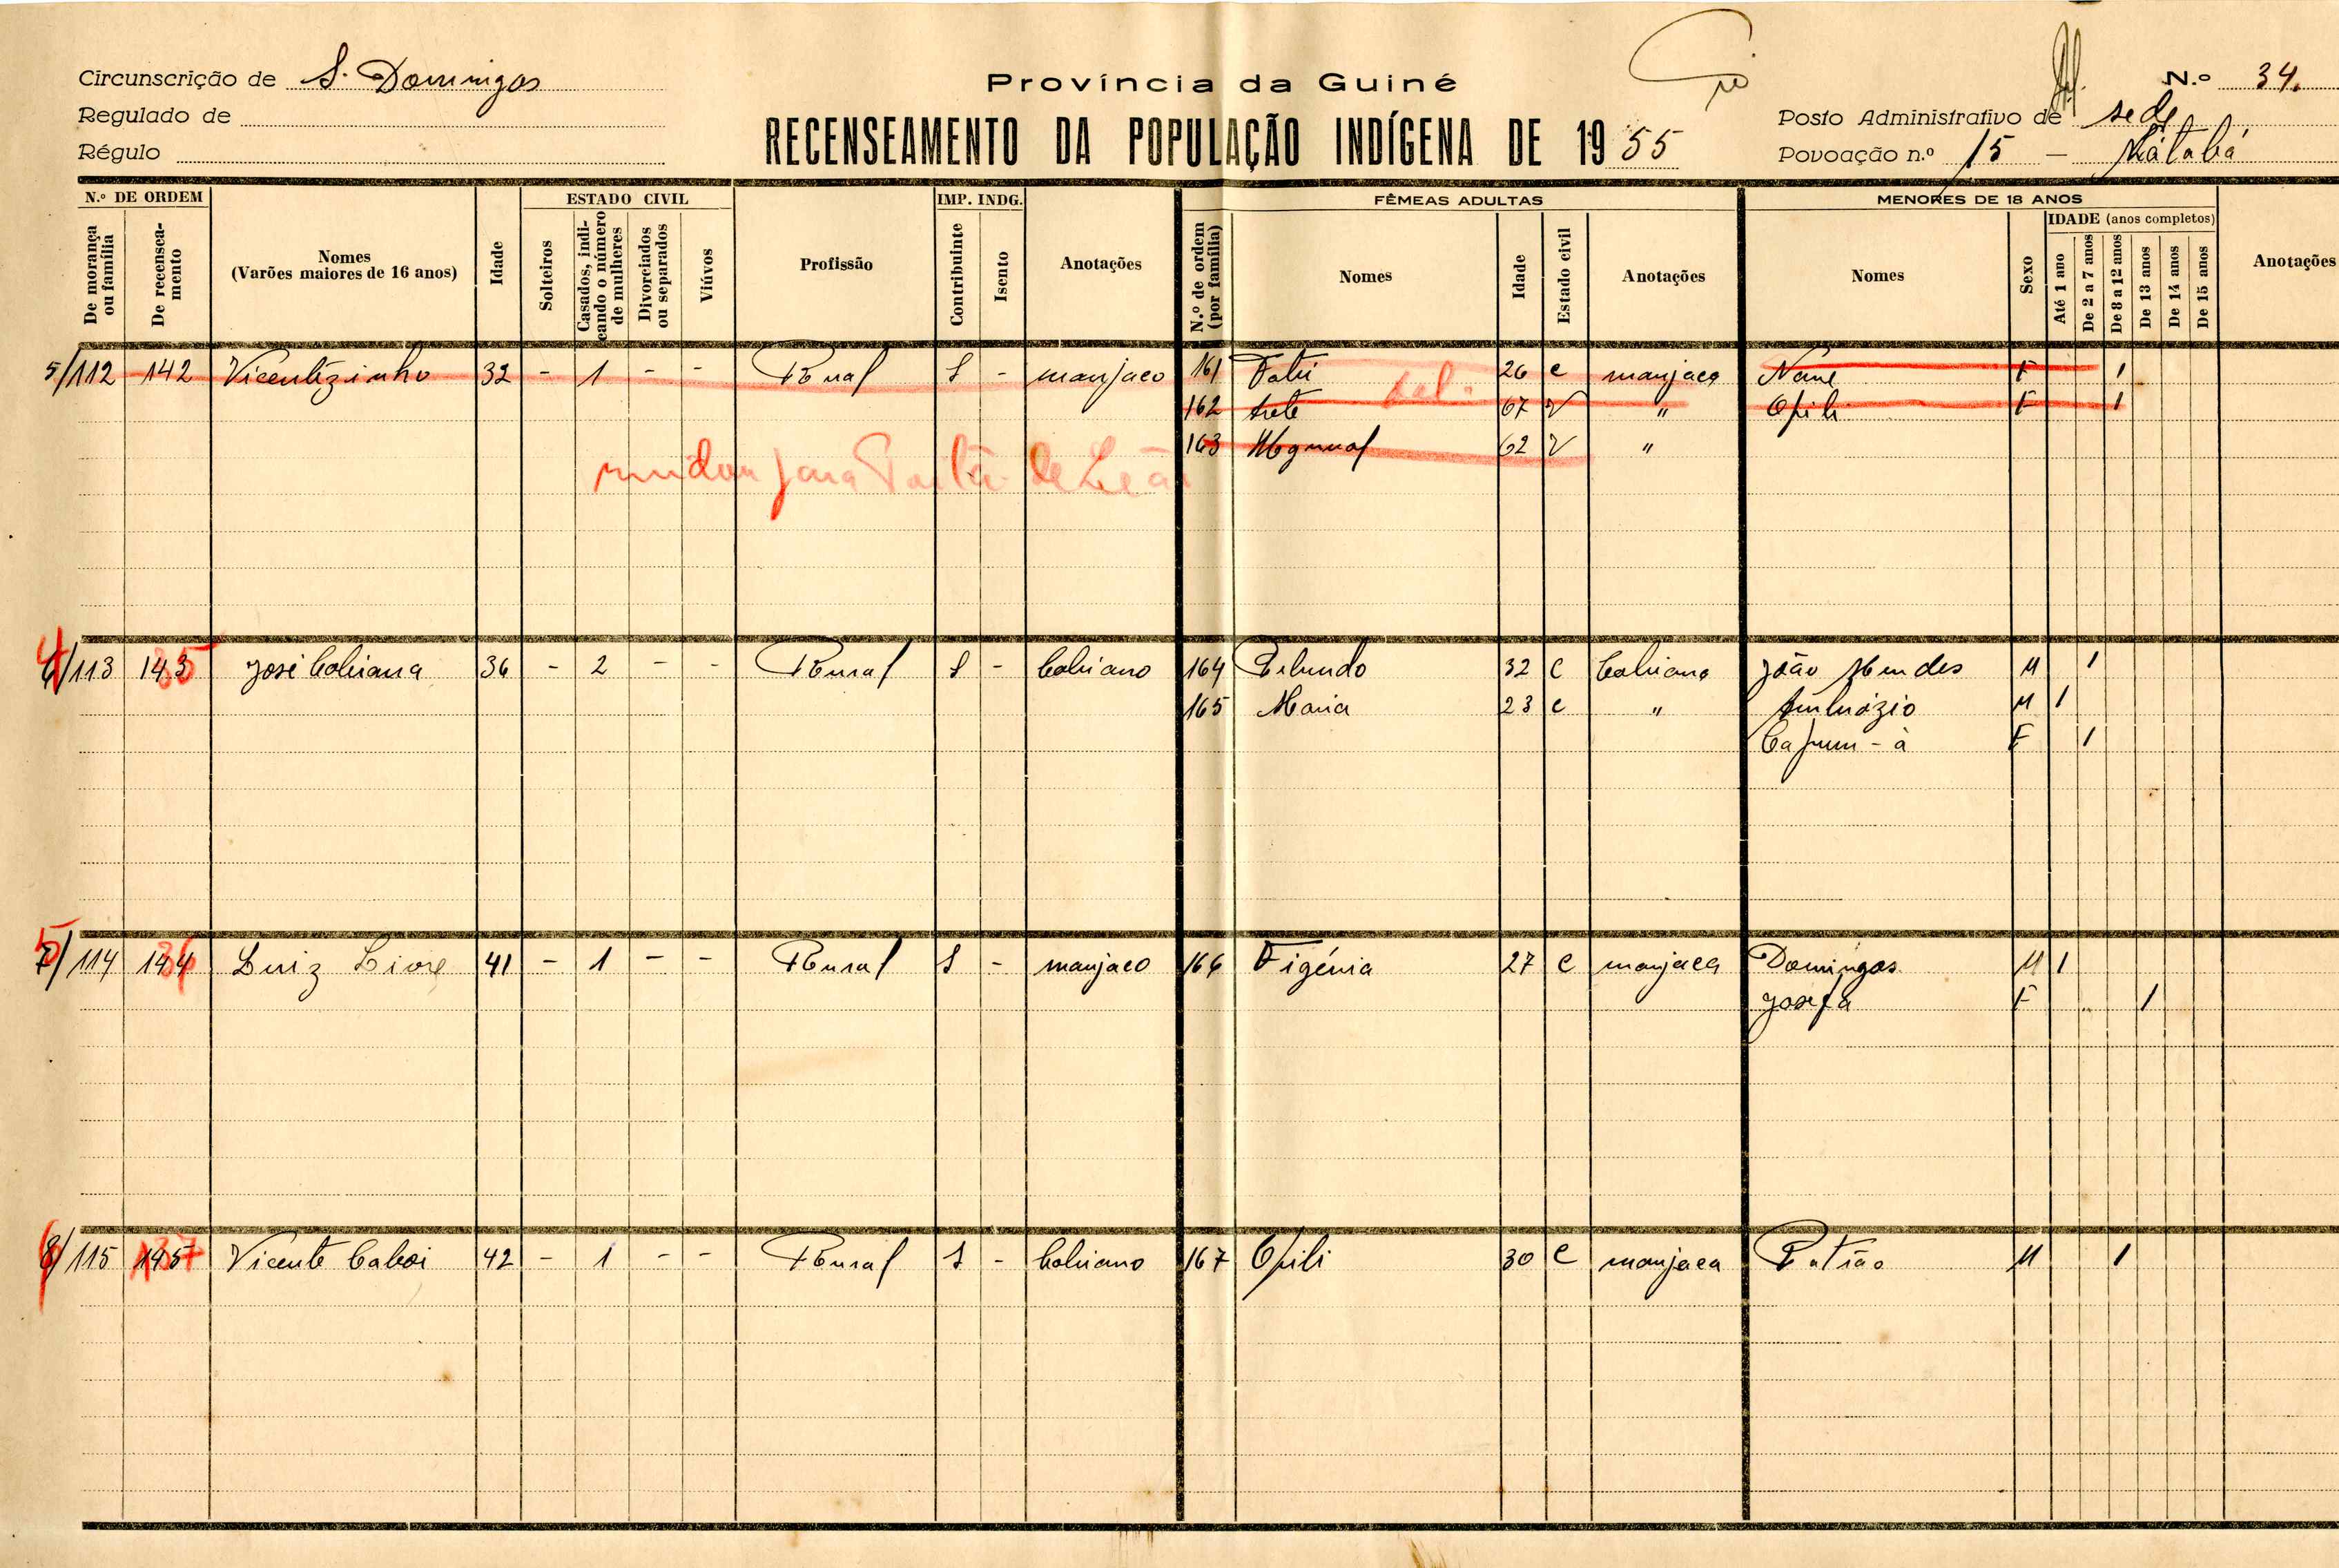 Circunscrição de S. Domingos
Regulado de
Régulo
Província da Guiné
RECENSEAMENTO DA POPULAÇÃO INDÍGENA DE 1955
N.º 34.
Posto Administrativo de sede
Povoação n.º 15 –
N.º DE ORDEM
De morança ou família
De recenseamento
Nomes
(Varões maiores de 16 anos)
Idade
ESTADO CIVIL
Solteiros
Casados, indicando o número de mulheres
Divorciados ou separados
Viúvos
Profissão
IMP. INDG.
Contribuinte
Isento
Anotações
FÊMEAS ADULTAS
N.º de ordem (por família)
Nomes
Idade
Estado civil
Anotações
MENORES DE 18 ANOS
Nomes
Sexo
IDADE (anos completos)
Até 1 ano
De 2 a 7 anos
De 8 a 12 anos
De 13 anos
De 14 anos
De 15 anos
Anotações
5/112 142 Vicentizinho 32 - 1 - - Rural S - manjaco 161 26 c manjaca F 1
162 67 V " F 1
163 62 V "
mudou para de Leão
/113 José Cobiana 36 - 2 - - Rural S - Cobiano 164 32 C Cobiana João Mendes M 1
165 Maria 23 c " Ambrózio M 1
F 1
/114 Luiz 41 - 1 - - Rural S - manjaco 166 Figénia 27 c manjaca Domingos M 1
Josefa F 1
/115 Vicente Caboi 42 - 1 - - Rural S - Cobiano 167 Opili 30 C manjaca Patrão M 1